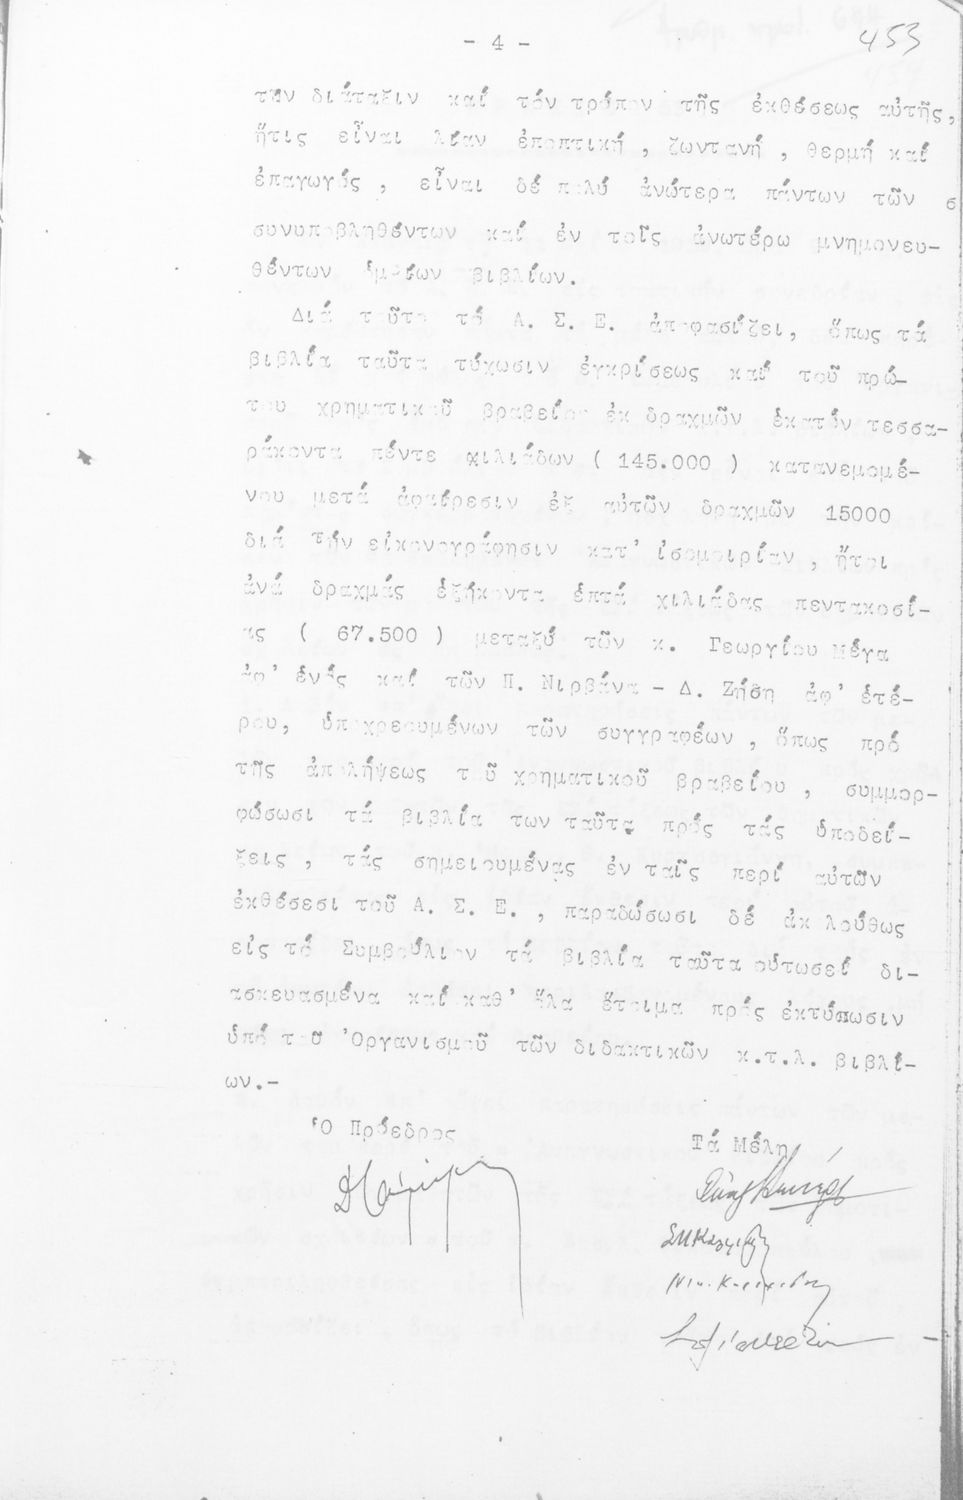 - 4 -
453
τήν διάταξιν καί τόν τρόπον τῆς ἐκθέσεως αὐτῆς,
ἥτις εἶναι λίαν ἐποπτική, ζωντανή, θερμή καί
ἐπαγωγός, εἶναι δέ πολύ ἀνώτερα πάντων τῶν σ
συνυποβληθέντων καί ἐν τοῖς ἀνωτέρω μνημονευ-
θέντων ὁμοίων βιβλίων.
Διά ταῦτα τό Α. Σ. Ε. ἀποφασίζει, ὅπως τά
βιβλία ταῦτα τύχωσιν ἐγκρίσεως καί τοῦ πρώ-
του χρηματικοῦ βραβείου ἐκ δραχμῶν ἑκατόν τεσσα-
ράκοντα πέντε χιλιάδων ( 145.000 ) κατανεμομέ-
νου μετά ἀφαίρεσιν ἐξ αὐτῶν δραχμῶν 15000
διά τήν εἰκονογράφησιν κατ' ἰσομοιρίαν, ἤτοι
ἀνά δραχμάς ἑξήκοντα ἑπτά χιλιάδας πεντακοσί-
ας ( 67.500 ) μεταξύ τῶν κ. Γεωργίου Μέγα
ἀφ' ἑνός καί τῶν Π. Νιρβάνα - Δ. Ζήση ἀφ' ἑτέ-
ρου, ὑποχρεουμένων τῶν συγγραφέων, ὅπως πρό
τῆς ἀπολήψεως τοῦ χρηματικοῦ βραβείου, συμμορ-
φώσωσι τά βιβλία των ταῦτα πρός τάς ὑποδεί-
ξεις, τάς σημειουμένας ἐν ταῖς περί αὐτῶν
ἐκθέσεσι τοῦ Α. Σ. Ε., παραδώσωσι δέ ἀκ λούθως
εἰς τό Συμβούλιον τά βιβλία ταῦτα οὑτωσεί δι-
ασκευασμένα καί καθ' ὅλα ἕτοιμα πρός ἐκτύπωσιν
ὑπό τοῦ Ὀργανισμοῦ τῶν διδακτικῶν κ.τ.λ. βιβλί-
ων.-
Ὁ Πρόεδρος
Τά Μέλη